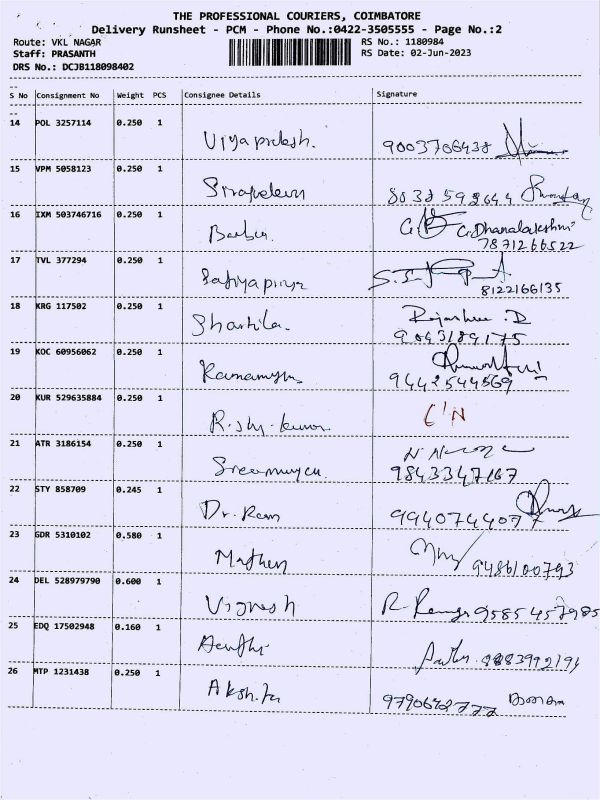 THE PROFESSIONAL COURIERS, COIMBATORE
Delivery Runsheet - PCM - Phone No.:0422-3505555 - Page No.:2
Route: VKL NAGAR RS No.: 1180984
Staff: PRASANTH RS Date: 02-Jun-2023
DRS No.: DCJB118098402
--
S No Consignment No Weight PCS Consignee Details Signature
--
14 POL 3257114 0.250 1
Vijayaprakash. 9003706438
15 VPM 5058123 0.250 1
16 IXM 503746716 0.250 1
G. Dhanalakshmi
7871266522
17 TVL 377294 0.250 1
Sathyapriya
8122166135
18 KRG 117502 0.250 1
Sharkila. Rajashree .D
9043189175
19 KOC 60956062 0.250 1
9442544569
20 KUR 529635884 0.250 1
21 ATR 3186154 0.250 1
9843347167
22 STY 858709 0.245 1
Dr. Ram 9940744077
23 GDR 5310102 0.580 1
Mathew 9486100793
24 DEL 528979790 0.600 1
Vignesh 9585457985
25 EDQ 17502948 0.160 1
26 MTP 1231438 0.250 1